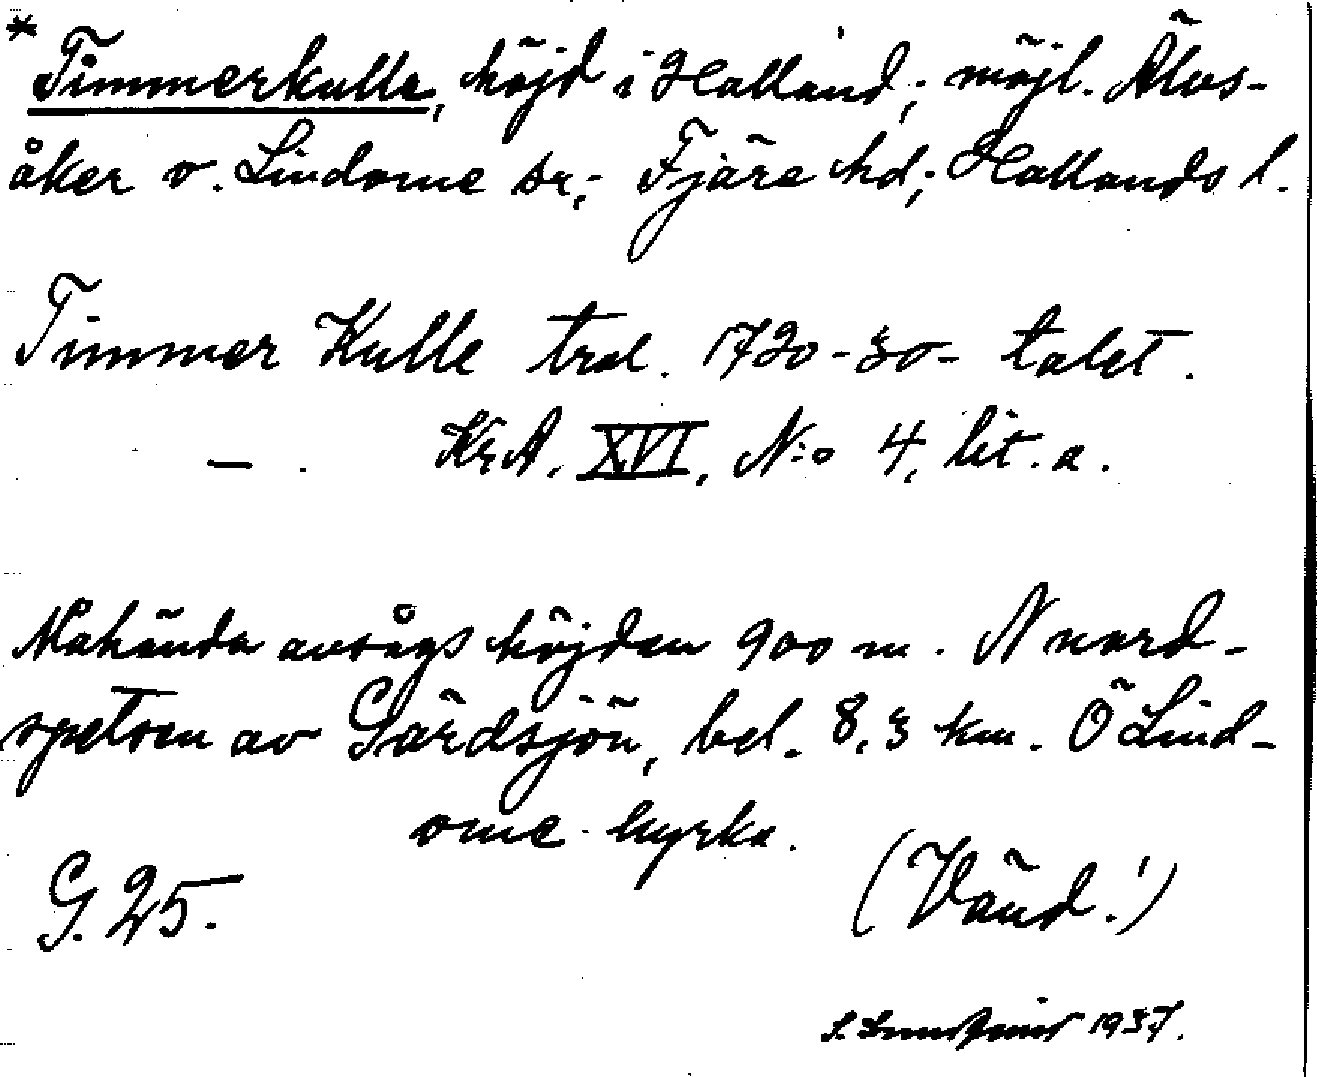 * Timmerkulle, höjd i Halland; möjl. Älvs-
åker o. Lindome sn; Fjäre hd; Hallands l.
Timmer Kulle trol. 1720-30- talet.
— . KrA. XVI, N:o 4, lit. a.
Måhända avsågs höjden 900 m. N nord-
spetsen av Gärdsjön, bel. 8,3 km. Ö Lind-
ome kyrka.
G. 25. (Vänd!)
1937.